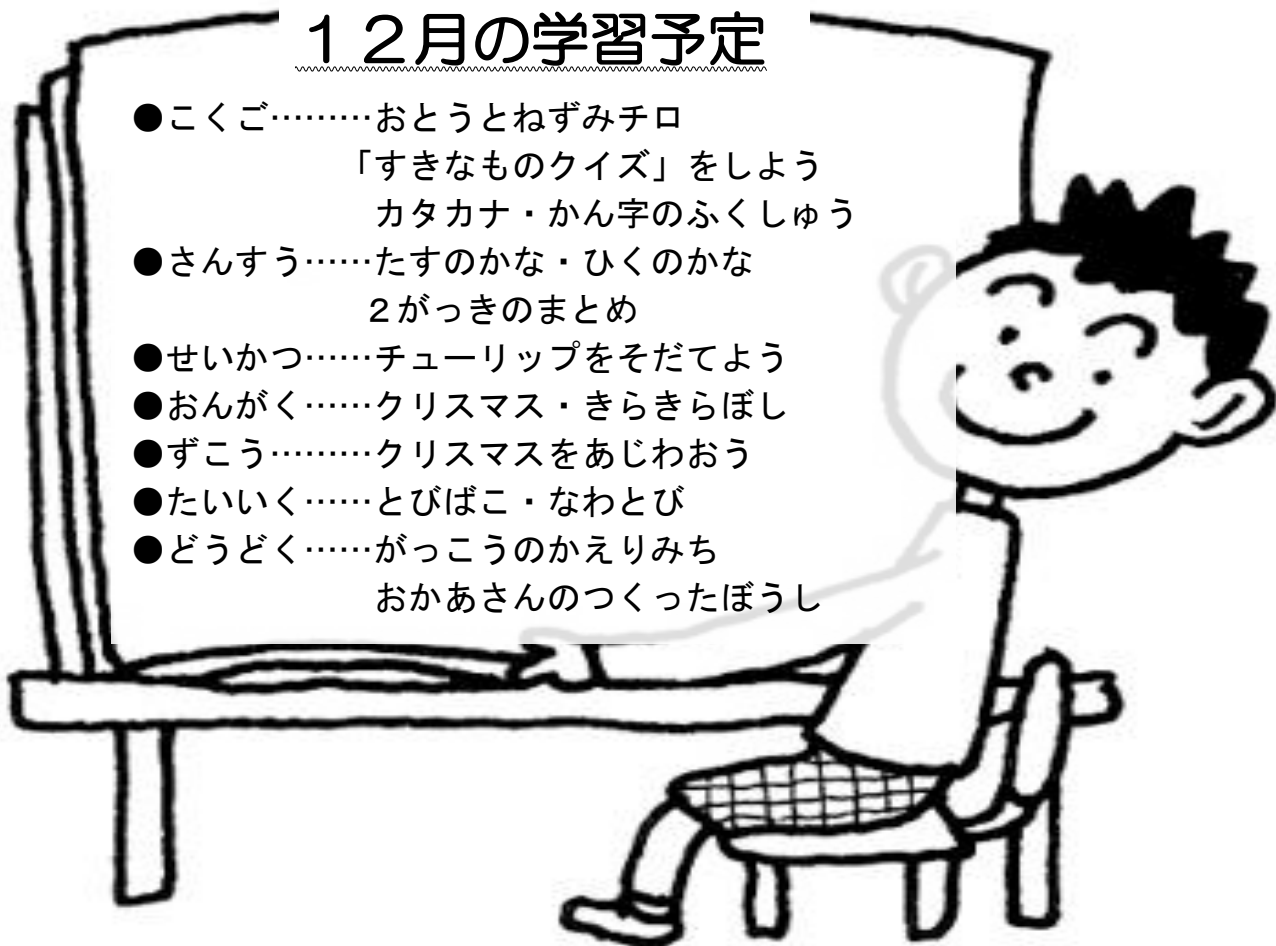 １２月の学習予定
●こくご………おとうとねずみチロ
「すきなものクイズ」をしよう
カタカナ・かん字のふくしゅう
●さんすう……たすのかな・ひくのかな
２がっきのまとめ
●せいかつ……チューリップをそだてよう
●おんがく……クリスマス・きらきらぼし
●ずこう………クリスマスをあじわおう
●たいいく……とびばこ・なわとび
●どうどく……がっこうのかえりみち
おかあさんのつくったぼうし